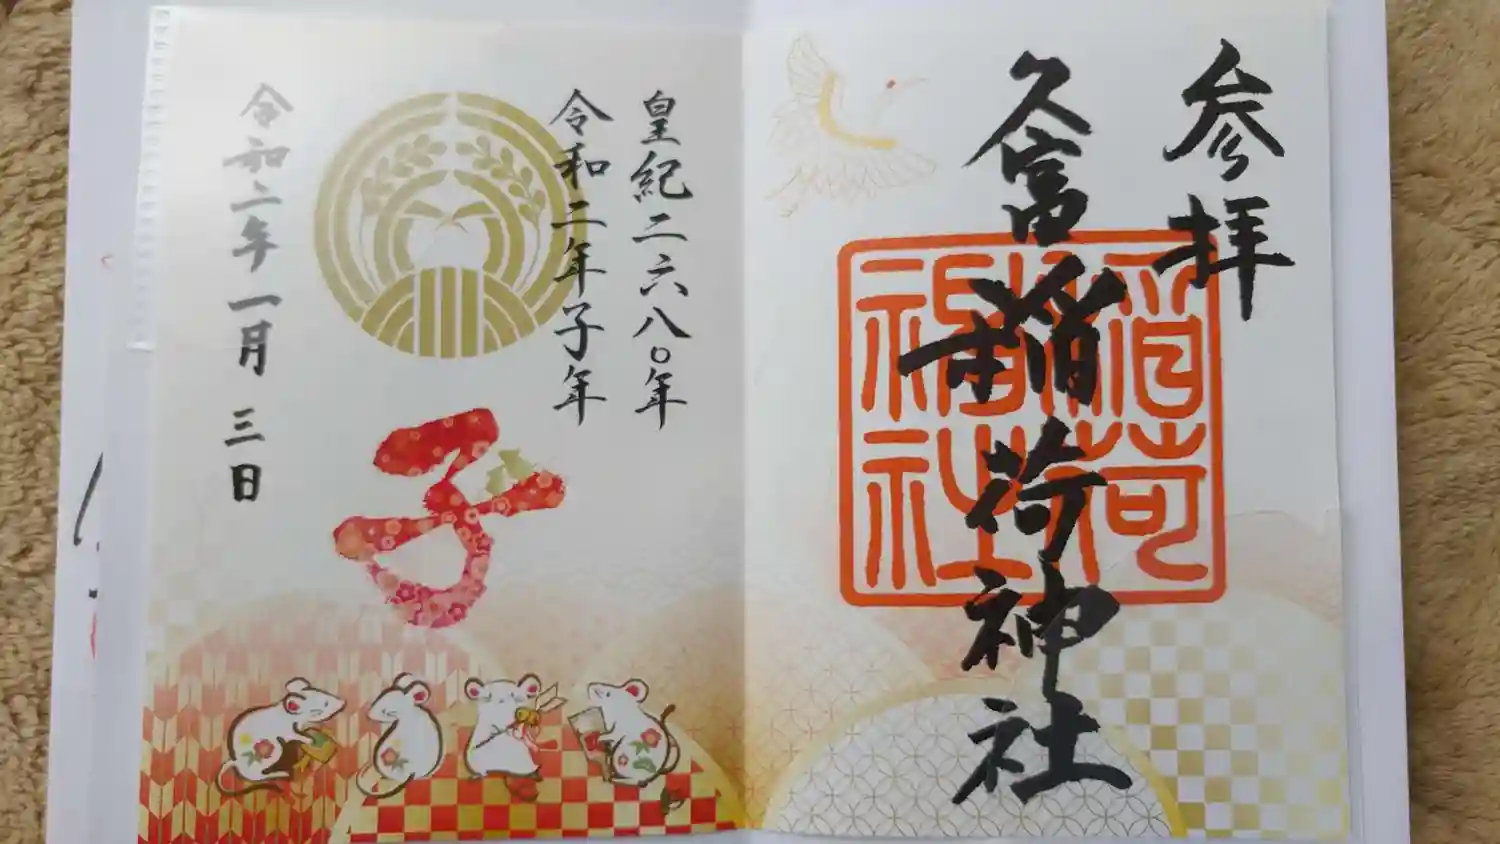 参拝
久富稲荷神社
稲荷
神社
皇紀二六八〇年
令和二年子年
子
令和二年一月三日